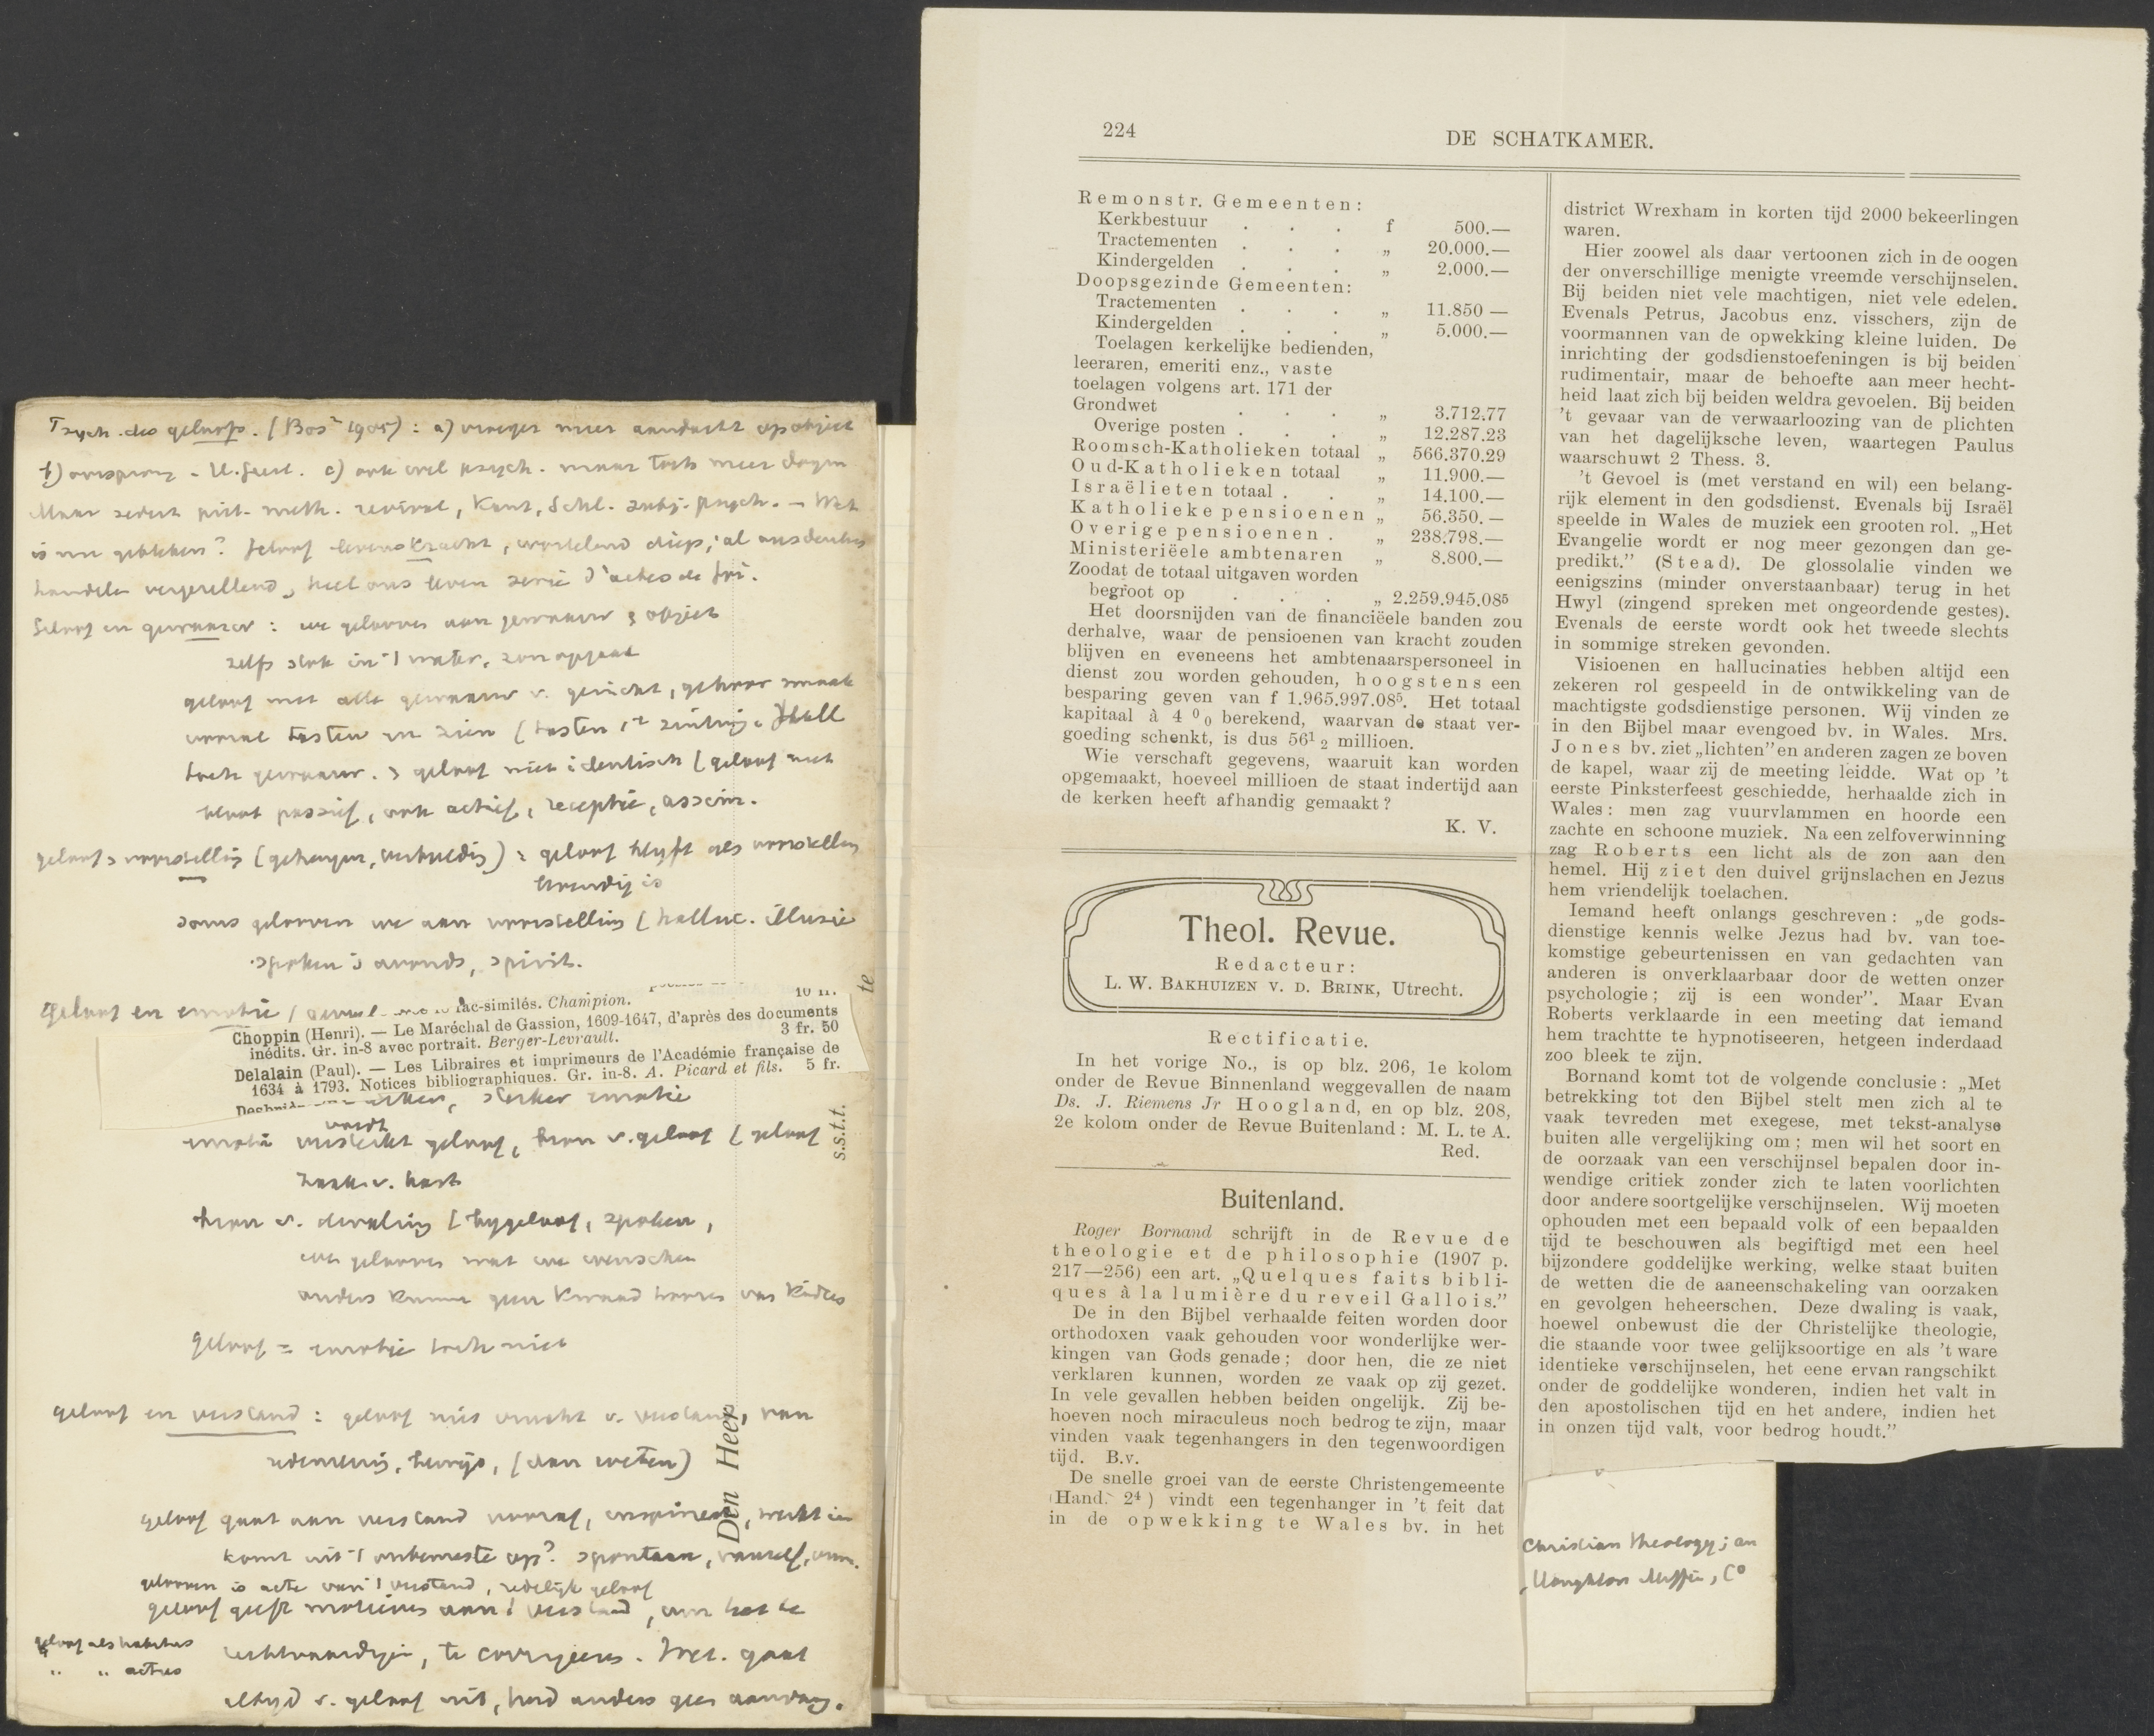 Psych. des geloofs. (Bos² 1905): a) vroeger meer aandacht op object
b) oorsprong - H. Geest. c) ook wel psych. maar toch meer dogm
Maar sedert piet. meth. revival, Kant, Schl. subj. psych. - Wat
is nu gebleken? geloof levenskracht, wortelend diep, al ons denken
handelen vergezellend, heel ons leven serie d'actes de foi.
geloof en gewaarw: we gelooven aan gewaarw & object
zelfs stok in 't water, zon opgaat
geloof met alle gewaarw v. gezicht, gehoor smaak
vooral tasten en zien (tasten 1e zintuig. Hall
toch gewaarw. & geloof niet identisch (geloof niet
bloot passief, ook actief, receptie, assim.
geloof & voorstelling (geheugen, verbeelding): geloof blijft als voorstelling
levendig is
soms gelooven we aan voorstelling (halluc. illusie
spoken 's avonds, spirit.
geloof en emotie
fac-similés. Champion. 10 fr.
Choppin (Henri). — Le Maréchal de Gassion, 1609-1647, d'après des documents
inédits. Gr. in-8 avec portrait. Berger-Levrault. 3 fr. 50
Delalain (Paul). — Les Libraires et imprimeurs de l'Académie française de
1634 à 1793. Notices bibliographiques. Gr. in-8. A. Picard et fils. 5 fr.
sterker emotie
wordt
emotie versterkt geloof, bron v. geloof (geloof
zaak v. hart
bron v. dwaling (bijgeloof, spoken,
we gelooven wat we wenschen
anders kunnen geen kwaad hooren van kinders
geloof = emotie toch niet
geloof en verstand: geloof niet vrucht v. verstand, van
redeneering, bewijs, (dan weten)
geloof gaat aan verstand vooraf,
komt uit 't onbewuste op? spontaan, vanzelf,
gelooven is acte van 't verstand, redelijk geloof
geloof geeft motieven aan 't verstand, om het te
geloof als habitus
" " actus
rechtvaardigen, te corrigeeren. Wet. gaat
altijd v. geloof uit, had anders geen aanvang.
te
s.s.t.t.
Den Heer
224
DE SCHATKAMER.
Remonstr. Gemeenten:
Kerkbestuur . . . f 500.—
Tractementen . . . „ 20.000.—
Kindergelden . . . „ 2.000.—
Doopsgezinde Gemeenten:
Tractementen . . . „ 11.850 —
Kindergelden . . . „ 5.000.—
Toelagen kerkelijke bedienden,
leeraren, emeriti enz., vaste
toelagen volgens art. 171 der
Grondwet . . . „ 3.712.77
Overige posten . . . „ 12.287.23
Roomsch-Katholieken totaal „ 566.370.29
Oud-Katholieken totaal „ 11.900.—
Israëlieten totaal . . „ 14.100.—
Katholieke pensioenen „ 56.350. —
Overige pensioenen . „ 238.798.—
Ministerieele ambtenaren „ 8.800.—
Zoodat de totaal uitgaven worden
begroot op . . . „ 2.259.945.08⁵
Het doorsnijden van de financiëele banden zou
derhalve, waar de pensioenen van kracht zouden
blijven en eveneens het ambtenaarspersoneel in
dienst zou worden gehouden, hoogstens een
besparing geven van f 1.965.997.08⁵. Het totaal
kapitaal à 4 ⁰₀ berekend, waarvan de staat ver-
goeding schenkt, is dus 56¹ ₂ millioen.
Wie verschaft gegevens, waaruit kan worden
opgemaakt, hoeveel millioen de staat indertijd aan
de kerken heeft afhandig gemaakt?
K. V.
Theol. Revue.
Redacteur:
L. W. BAKHUIZEN V. D. BRINK, Utrecht.
Rectificatie.
In het vorige No., is op blz. 206, 1e kolom
onder de Revue Binnenland weggevallen de naam
Ds. J. Riemens Jr Hoogland, en op blz. 208,
2e kolom onder de Revue Buitenland: M. L. te A.
Red.
Buitenland.
Roger Bornand schrijft in de Revue de
theologie et de philosophie (1907 p.
217—256) een art. „Quelques faits bibli-
ques à la lumière du reveil Gallois.”
De in den Bijbel verhaalde feiten worden door
orthodoxen vaak gehouden voor wonderlijke wer-
kingen van Gods genade; door hen, die ze niet
verklaren kunnen, worden ze vaak op zij gezet.
In vele gevallen hebben beiden ongelijk. Zij be-
hoeven noch miraculeus noch bedrog te zijn, maar
vinden vaak tegenhangers in den tegenwoordigen
tijd. B.v.
De snelle groei van de eerste Christengemeente
(Hand. 2⁴) vindt een tegenhanger in 't feit dat
in de opwekking te Wales bv. in het
district Wrexham in korten tijd 2000 bekeerlingen
waren.
Hier zoowel als daar vertoonen zich in de oogen
der onverschillige menigte vreemde verschijnselen.
Bij beiden niet vele machtigen, niet vele edelen.
Evenals Petrus, Jacobus enz. visschers, zijn de
voormannen van de opwekking kleine luiden. De
inrichting der godsdienstoefeningen is bij beiden
rudimentair, maar de behoefte aan meer hecht-
heid laat zich bij beiden weldra gevoelen. Bij beiden
't gevaar van de verwaarloozing van de plichten
van het dagelijksche leven, waartegen Paulus
waarschuwt 2 Thess. 3.
't Gevoel is (met verstand en wil) een belang-
rijk element in den godsdienst. Evenals bij Israël
speelde in Wales de muziek een grooten rol. „Het
Evangelie wordt er nog meer gezongen dan ge-
predikt.” (Stead). De glossolalie vinden we
eenigszins (minder onverstaanbaar) terug in het
Hwyl (zingend spreken met ongeordende gestes).
Evenals de eerste wordt ook het tweede slechts
in sommige streken gevonden.
Visioenen en hallucinaties hebben altijd een
zekeren rol gespeeld in de ontwikkeling van de
machtigste godsdienstige personen. Wij vinden ze
in den Bijbel maar evengoed bv. in Wales. Mrs.
Jones bv. ziet „lichten” en anderen zagen ze boven
de kapel, waar zij de meeting leidde. Wat op 't
eerste Pinksterfeest geschiedde, herhaalde zich in
Wales: men zag vuurvlammen en hoorde een
zachte en schoone muziek. Na een zelfoverwinning
zag Roberts een licht als de zon aan den
hemel. Hij ziet den duivel grijnslachen en Jezus
hem vriendelijk toelachen.
Iemand heeft onlangs geschreven: „de gods-
dienstige kennis welke Jezus had bv. van toe-
komstige gebeurtenissen en van gedachten van
anderen is onverklaarbaar door de wetten onzer
psychologie; zij is een wonder”. Maar Evan
Roberts verklaarde in een meeting dat iemand
hem trachtte te hypnotiseeren, hetgeen inderdaad
zoo bleek te zijn.
Bornand komt tot de volgende conclusie: „Met
betrekking tot den Bijbel stelt men zich al te
vaak tevreden met exegese, met tekst-analyse
buiten alle vergelijking om; men wil het soort en
de oorzaak van een verschijnsel bepalen door in-
wendige critiek zonder zich te laten voorlichten
door andere soortgelijke verschijnselen. Wij moeten
ophouden met een bepaald volk of een bepaalden
tijd te beschouwen als begiftigd met een heel
bijzondere goddelijke werking, welke staat buiten
de wetten die de aaneenschakeling van oorzaken
en gevolgen heheerschen. Deze dwaling is vaak,
hoewel onbewust die der Christelijke theologie,
die staande voor twee gelijksoortige en als 't ware
identieke verschijnselen, het eene ervan rangschikt
onder de goddelijke wonderen, indien het valt in
den apostolischen tijd en het andere, indien het
in onzen tijd valt, voor bedrog houdt.”
Christian theology; an
Houghton Mifflin, C⁰